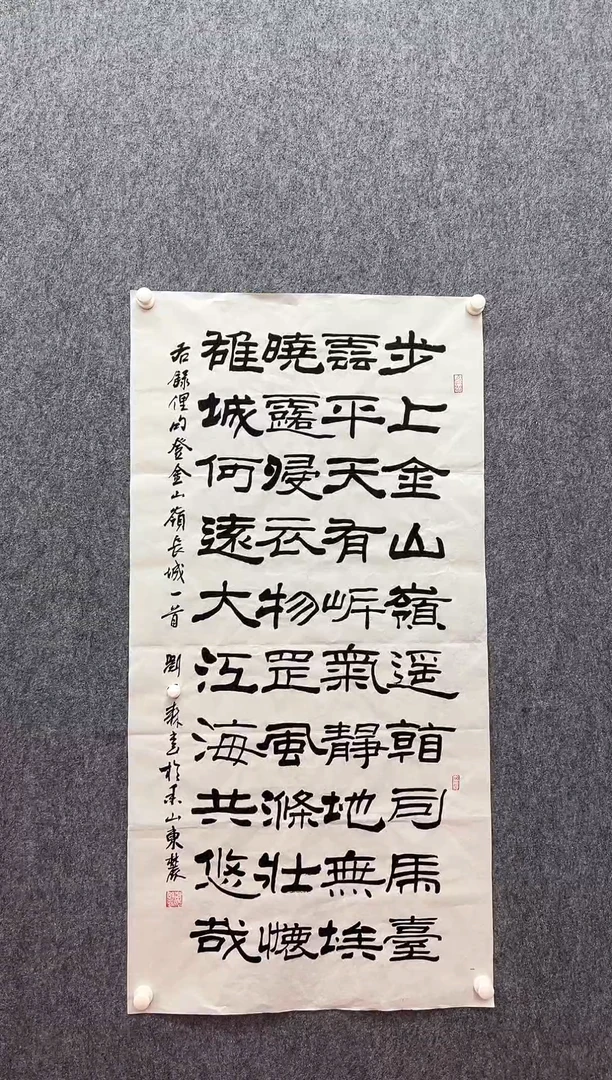 步上金山嶺遥朝司馬臺
雲平天有岸氣靜地無埃
曉露侵衣物罡風滌壯懷
雄城何遠大江海共悠哉
右録俚句登金山嶺長城一首 劉 森書於香山東麓